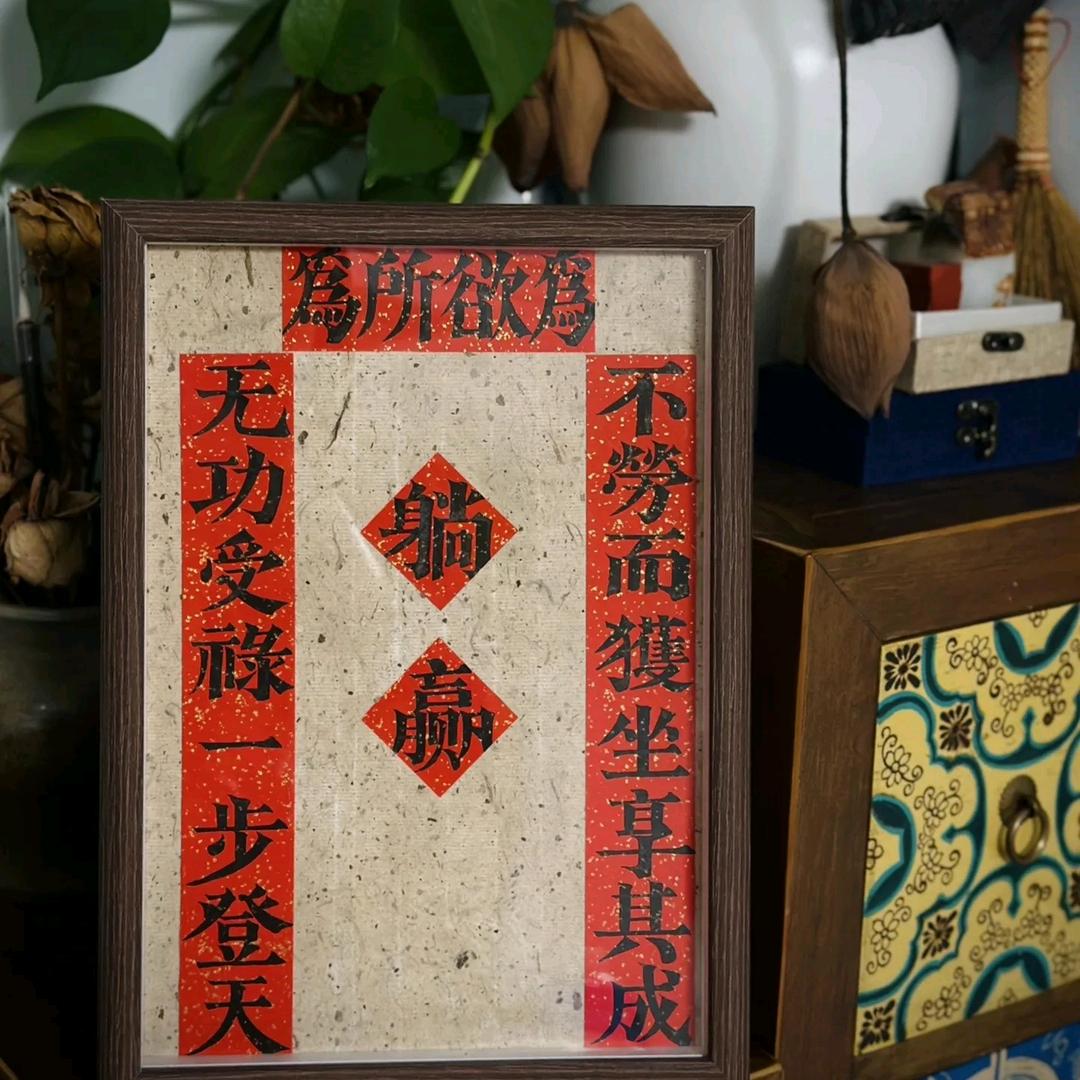 為所欲為
不勞而獲坐享其成
无功受祿一步登天
躺
赢